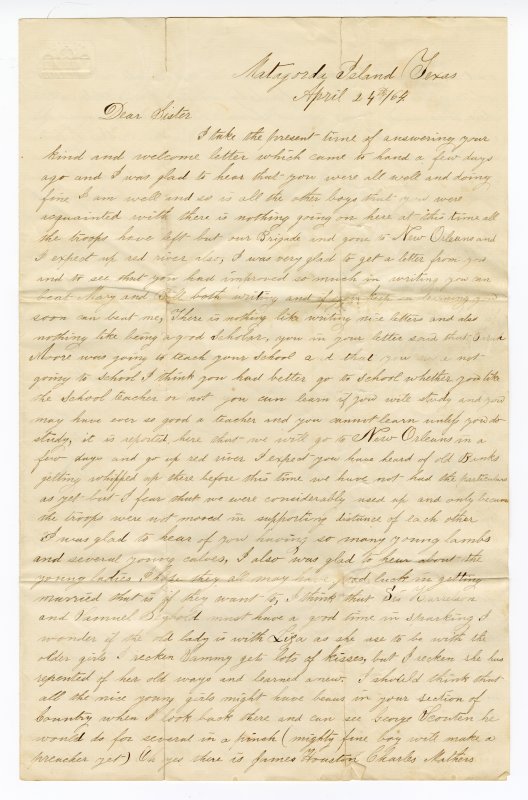 Matagordy Island Texas
April 24th/64.
Dear Sister
I take the present time of answering your
kind and welcome letter which came to hand a few days
ago and I was glad to hear that you were all well and doing
fine I am well and so is all the other boys that you were
acquainted with there is nothing going on here at this time all
the troops have left but our Brigade and gone to New Orleans and
I expect up red river also, I was very glad to get a letter from you
and to see that you had improved so much in writing you can
beat Mary and both writing and if you in learning you
soon can beat me, There is nothing like writing nice letters and also
nothing like being a good Scholar, you in your letter said that
Moore was going to teach your School and that you not
going to School I think you had better go to School whether you like
the School teacher or not you can learn if you will study and you
may have ever so good a teacher and you cannot learn unless you do
study, it is reported here that we will go to New Orleans in a
few days and go up red river I expect you have heard of old Banks
getting whipped up there before this time we have not had the particulars
as yet but I fear that we were considerably used up and only because
the troops were not moved in supporting distance of each other
I was glad to hear of you having so many young lambs
and several young calves, I also was glad to hear about the
young ladies I hope they all may have good luck in getting
married that is if they want to, I think that
and Samuel must have a good time in Sparking I
wonder if the old lady is with Liza as she use to be with the
older girls I recken Sammy gets lots of kisses, but I recken she has
repented of her old ways and learned anew. I should think that
all the nice young girls might have beaus in your section of
Country when I look back there and can see George Scouten he
would do for several in a pinch (mighty fine boy will make a
preacher yet) Oh yes there is James Houston Charles Mathers